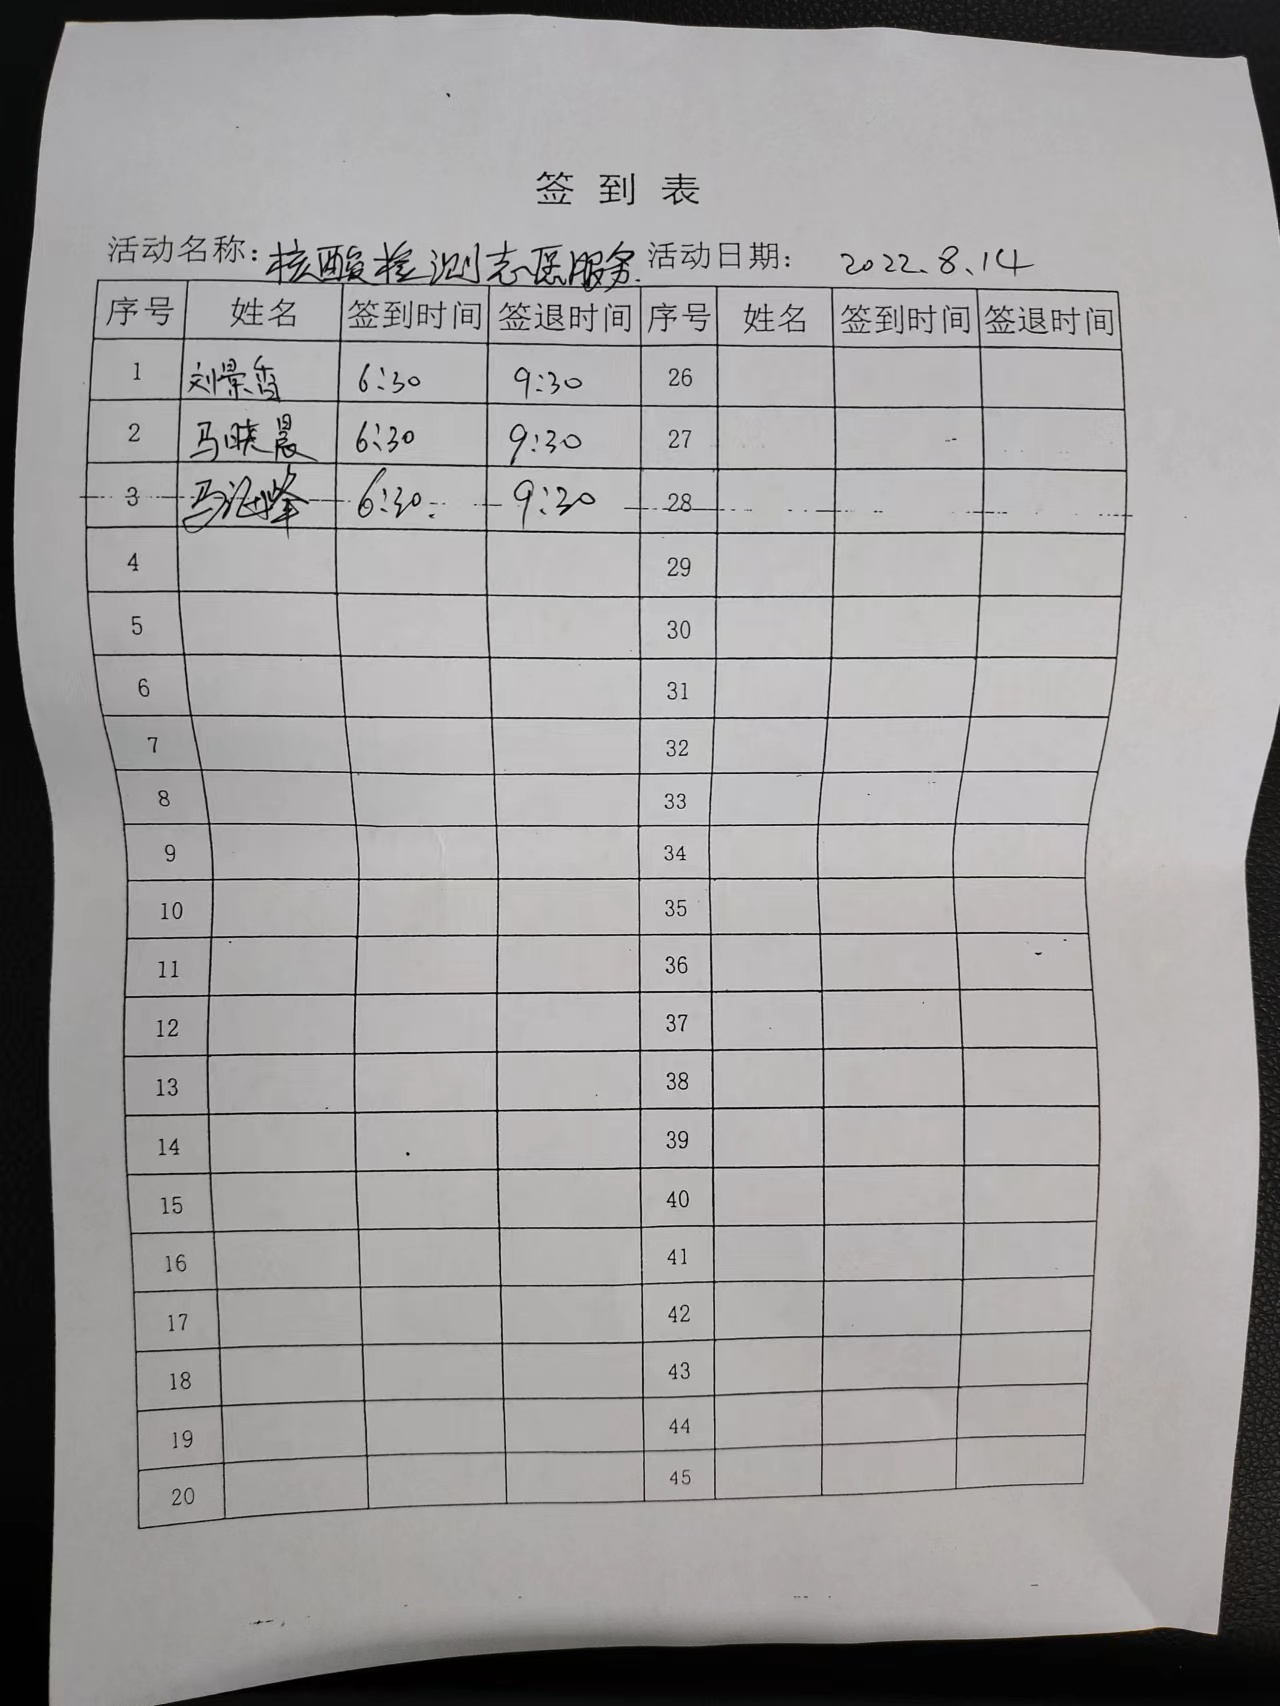 签到表
活动名称：核酸检测志愿服务 活动日期： 2022.8.14
序号 姓名 签到时间 签退时间 序号 姓名 签到时间 签退时间
1 刘景香 6:30 9:30 26
2 马晓晨 6:30 9:30 27
3 马海峰 6:30 9:30 28
4 29
5 30
6 31
7 32
8 33
9 34
10 35
11 36
12 37
13 38
14 39
15 40
16 41
17 42
18 43
19 44
20 45